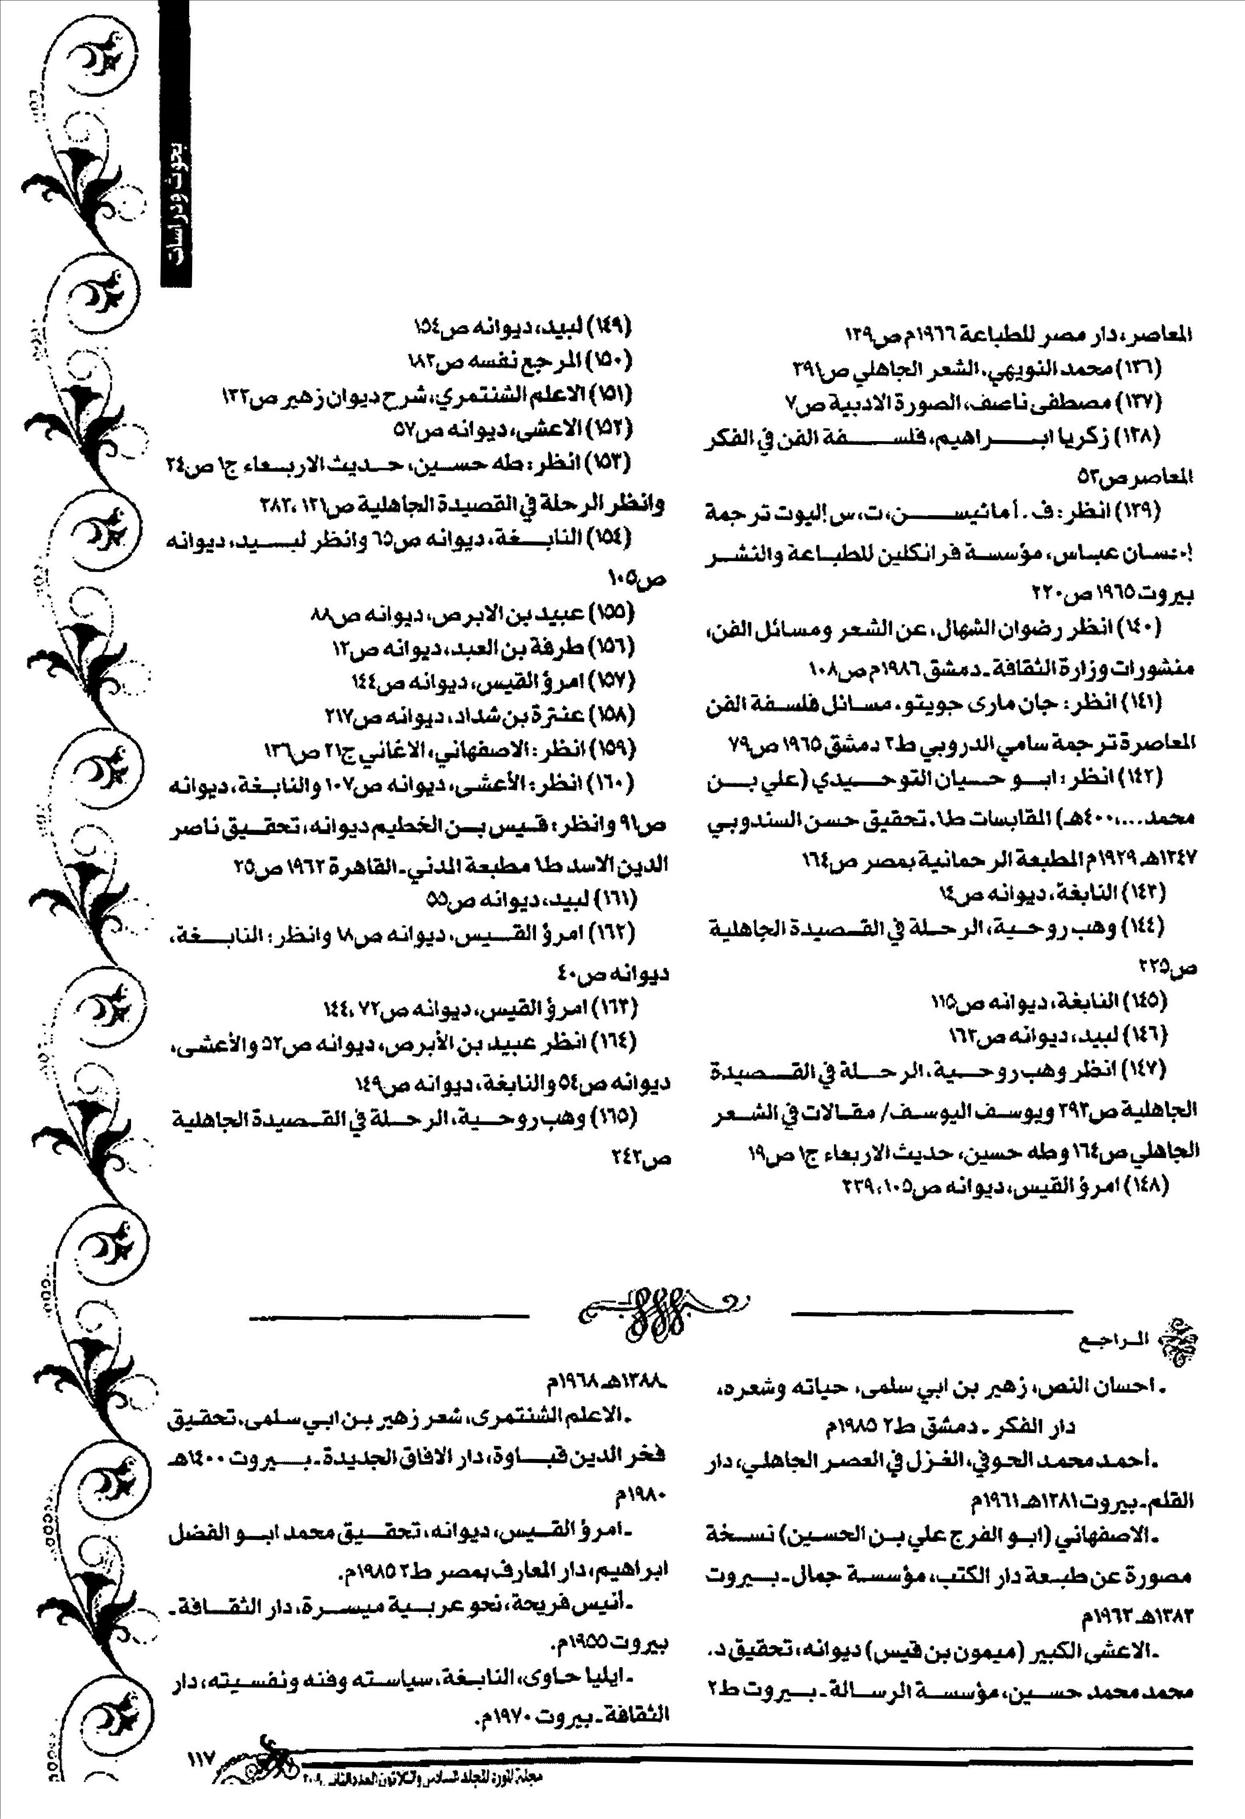 بحوث ودراسات
المعاصر، دار مصر للطباعة ١٩٦٦م ص١٣٩
(١٣٦) محمد النويهي، الشعر الجاهلي ص٣٩١
(١٣٧) مصطفى ناصف، الصورة الادبية ص٧
(١٣٨) زكريا ابراهيم، فلسفة الفن في الفكر
المعاصر ص٥٣
(١٣٩) انظر: ف. أ ماثيسن، ت، س إليوت ترجمة
إحسان عباس، مؤسسة فرانكلين للطباعة والنشر
بيروت ١٩٦٥ ص٢٢٠
(١٤٠) انظر رضوان الشهال، عن الشعر ومسائل الفن،
منشورات وزارة الثقافة ـ دمشق ١٩٨٦م ص١٠٨
(١٤١) انظر: جان مارى جويتو. مسائل فلسفة الفن
المعاصرة ترجمة سامي الدروبي ط٢ دمشق ١٩٦٥ ص٧٩
(١٤٢) انظر: ابو حسيان التوحيدي (علي بن
محمد...،٤٠٠هـ) المقابسات ط١. تحقيق حسن السندوبي
١٣٤٧هـ ١٩٢٩م المطبعة الرحمانية بمصر ص١٦٤
(١٤٣) النابغة، ديوانه ص١٤
(١٤٤) وهب روحية، الرحلة في القصيدة الجاهلية
ص٢٢٥
(١٤٥) النابغة، ديوانه ص١١٥
(١٤٦) لبيد، ديوانه ص١٦٣
(١٤٧) انظر وهب روحية، الرحلة في القصيدة
الجاهلية ص٢٩٣ ويوسف اليوسف/ مقالات في الشعر
الجاهلي ص١٦٤ وطه حسين، حديث الاربعاء ج١ ص١٩
(١٤٨) امرؤ القيس، ديوانه ص١٠٥، ٢٣٩
(١٤٩) لبيد، ديوانه ص١٥٤
(١٥٠) المرجع نفسه ص١٨٣
(١٥١) الاعلم الشنتمري، شرح ديوان زهير ص١٣٣
(١٥٢) الاعشى، ديوانه ص٥٧
(١٥٣) انظر: طه حسين، حديث الاربعاء ج١ ص٢٤
وانظر الرحلة في القصيدة الجاهلية ص١٢١، ٢٨٣
(١٥٤) النابغة، ديوانه ص٦٥ وانظر لبيد، ديوانه
ص١٠٥
(١٥٥) عبيد بن الابرص، ديوانه ص٨٨
(١٥٦) طرفة بن العبد، ديوانه ص١٢
(١٥٧) امرؤ القيس، ديوانه ص١٤٤
(١٥٨) عنترة بن شداد، ديوانه ص٢١٧
(١٥٩) انظر: الاصفهاني، الاغاني ج٢١ ص١٣٦
(١٦٠) انظر: الأعشى، ديوانه ص١٠٧ والنابغة، ديوانه
ص٩١ وانظر: قيس بن الخطيم ديوانه، تحقيق ناصر
الدين الاسد ط١ مطبعة المدني ـ القاهرة ١٩٦٢ ص٢٥
(١٦١) لبيد، ديوانه ص٥٥
(١٦٢) امرؤ القيس، ديوانه ص١٨ وانظر: النابغة،
ديوانه ص٤٠
(١٦٣) امرؤ القيس، ديوانه ص٧٢، ١٤٤
(١٦٤) انظر عبيد بن الأبرص، ديوانه ص٥٢ والأعشى،
ديوانه ص٥٤ والنابغة، ديوانه ص١٤٩
(١٦٥) وهب روحية، الرحلة في القصيدة الجاهلية
ص٢٤٢
المراجع
ـ احسان النص، زهير بن ابي سلمى، حياته وشعره،
دار الفكر ـ دمشق ط٢ ١٩٨٥م
ـ أحمد محمد الحوفي، الغزل في العصر الجاهلي، دار
القلم ـ بيروت ١٣٨١هـ ١٩٦١م
ـ الاصفهاني (ابو الفرج علي بن الحسين) نسخة
مصورة عن طبعة دار الكتب، مؤسسة جمال ـ بيروت
١٣٨٢هـ ١٩٦٣م
ـ الاعشى الكبير (ميمون بن قيس) ديوانه، تحقيق د.
محمد محمد حسين، مؤسسة الرسالة ـ بيروت ط٢
١٣٨٨هـ ١٩٦٨م
ـ الاعلم الشنتمرى، شعر زهير بن ابي سلمى، تحقيق
فخر الدين قباوة، دار الافاق الجديدة ـ بيروت ١٤٠٠هـ
١٩٨٠م
ـ امرؤ القيس، ديوانه، تحقيق محمد ابو الفضل
ابراهيم، دار المعارف بمصر ط٢ ١٩٨٥م.
ـ أنيس فريحة، نحو عربية ميسرة، دار الثقافة ـ
بيروت ١٩٥٥م.
ـ ايليا حاوى، النابغة، سياسته وفنه ونفسيته، دار
الثقافة ـ بيروت ١٩٧٠م.
١١٧
مجلة المورد المجلد السادس والثلاثون العدد الثاني ٢٠٠٩